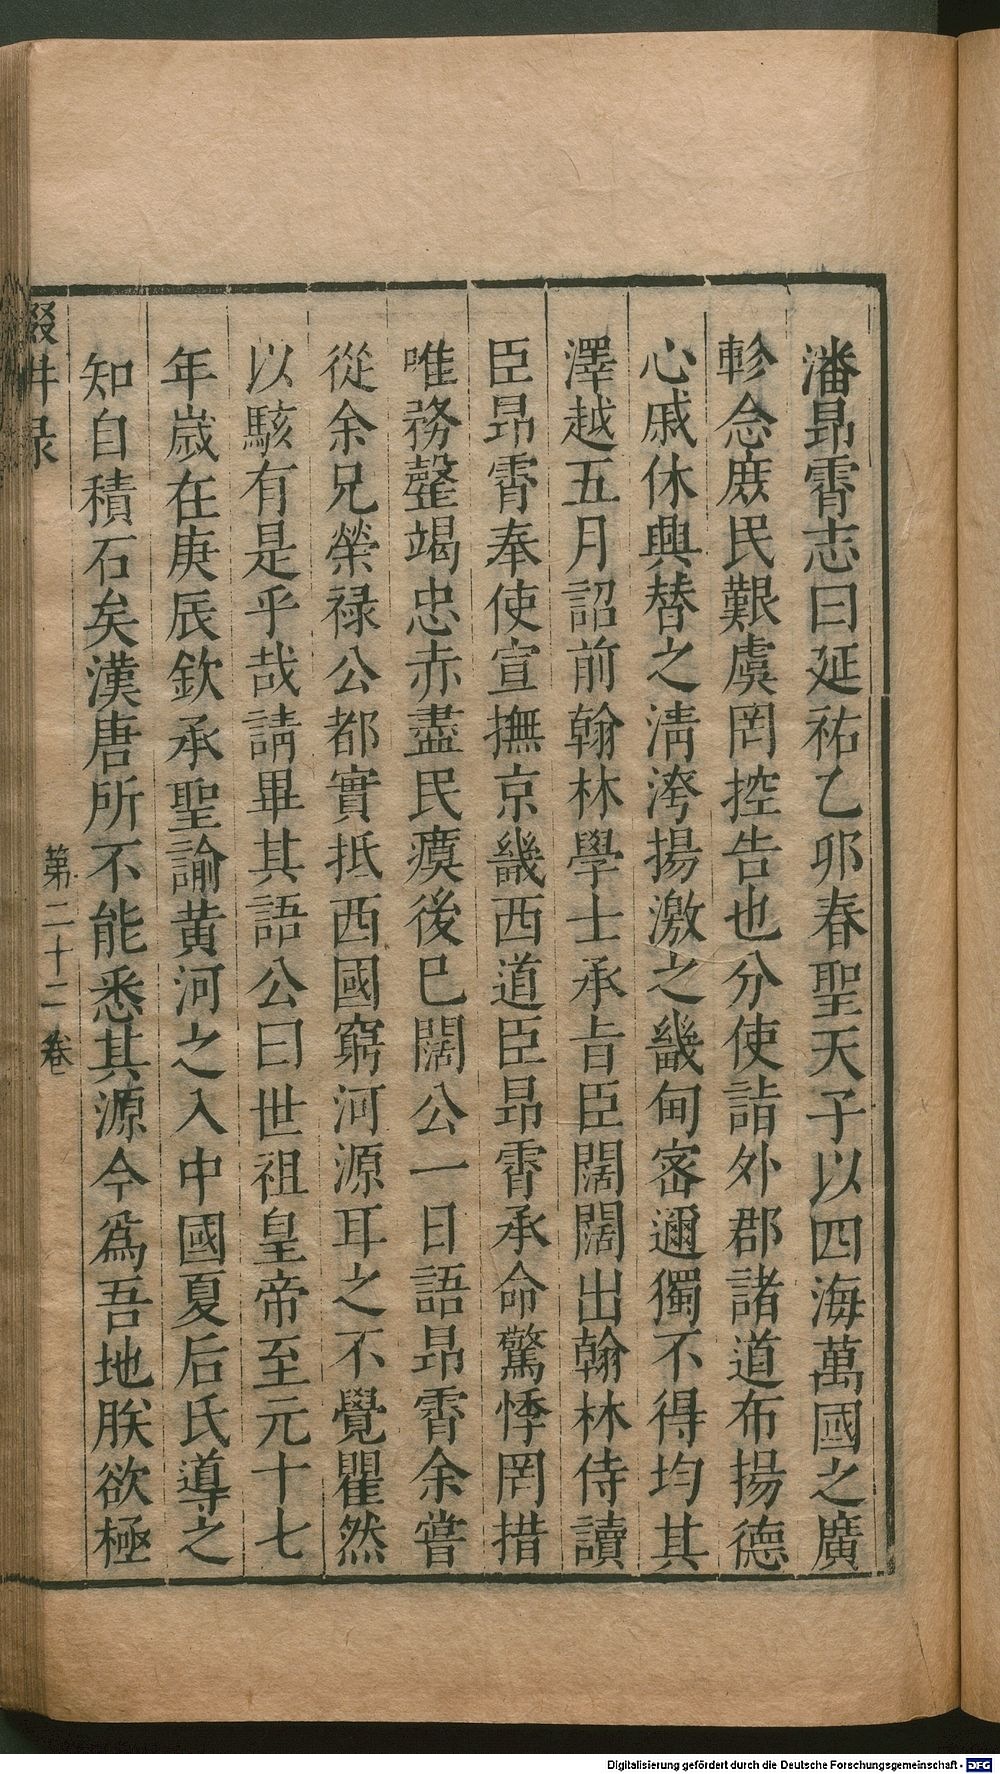 潘昻霄志曰延祐乙卯春聖天子以四海萬國之廣
軫念庶民艱虞罔控告也分使詣外郡諸道布揚德
心戚休興替之淸滂揚激之畿甸宻邇獨不得均其
澤越五月詔前翰林學士承旨臣闊闊出翰林侍讀
臣昻霄奉使宣撫京畿西道臣昻霄承命驚悸罔措
唯務罄竭忠赤盡民瘼後巳闊公一日語昻霄余嘗
從余兄榮禄公都實抵西國窮河源耳之不覺瞿然
以駭有是乎哉請畢其語公曰世祖皇帝至元十七
年嵗在庚辰欽承聖諭黄河之入中國夏后氏導之
知自積石矣漢唐所不能悉其源今爲吾地朕欲極
輟畊录
第二十二卷
Digitalisierung gefördert durch die Deutsche Forschungsgemeinschaft - DFG